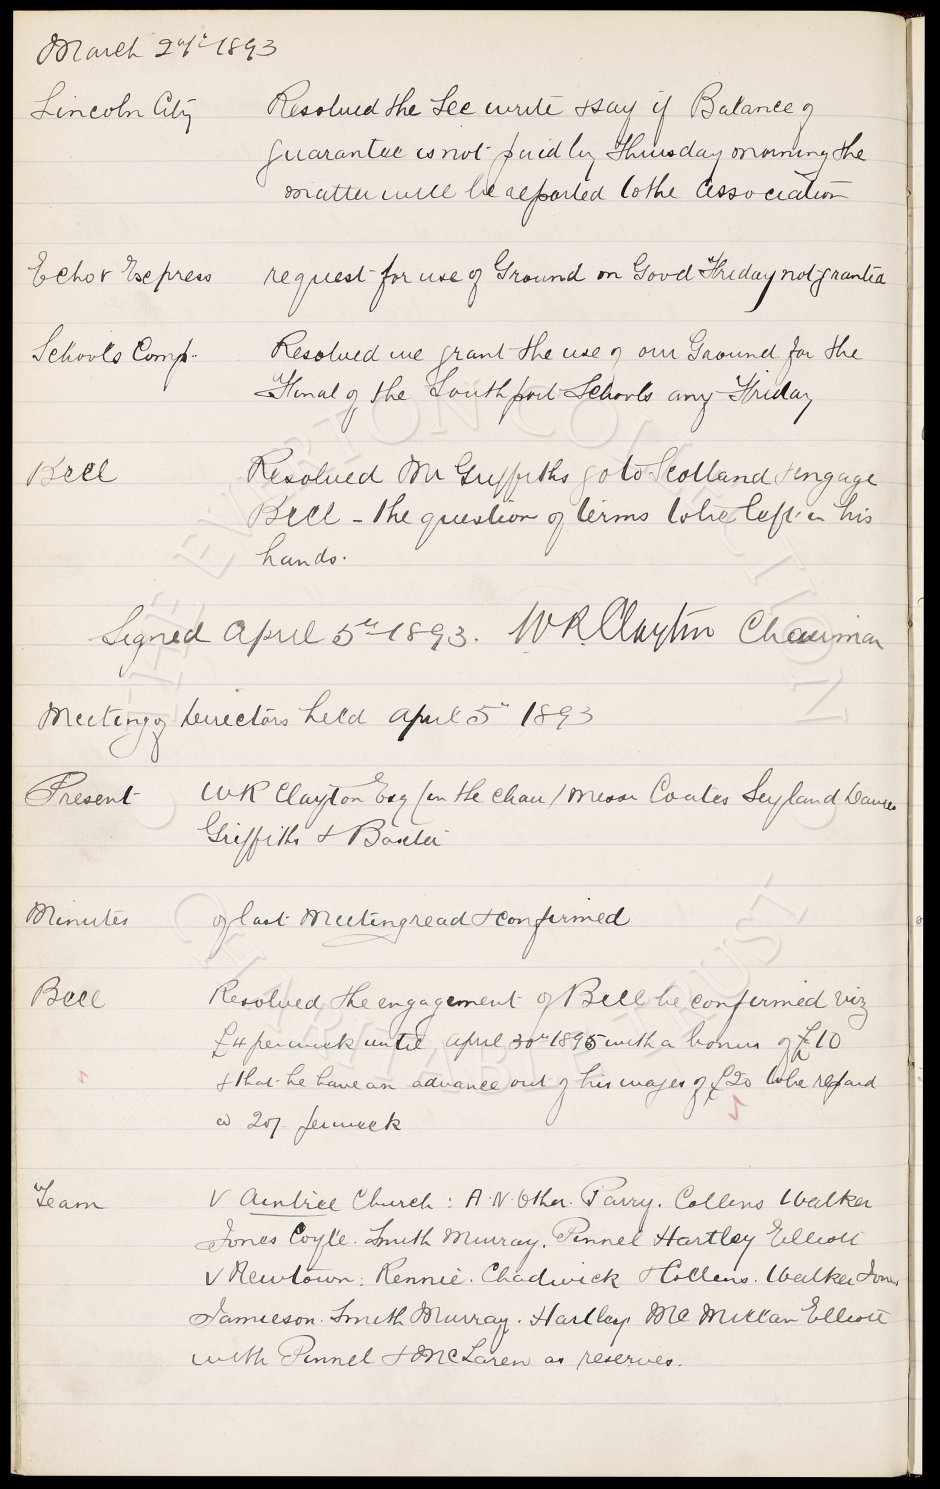 March 29th 1893
Lincoln City Resolved the Sec write & say if Balance of
guarantee is not paid by Thursday morning the
matter will be reported to the Association
Echo & Express request for use of Ground on Good Friday not granted
Schools Comp. Resolved we grant the use of our Ground for the
Final of the Southport Schools any Friday
Bell Resolved Mr Griffiths go to Scotland & engage
Bell - the question of terms to be left in his
hands.
Signed April 5th 1893. W R Clayton Chairman
Meeting of Directors held April 5th 1893
Present W R Clayton Esq (in the chair) Messrs Coates Leyland Davies
Griffiths & Baxter
Minutes of last Meeting read & confirmed
Bell Resolved the engagement of Bell be confirmed viz
£4 per week until April 30th 1895 with a bonus of £10
& that he have an advance out of his wages of £20 to be repaid
@ 20/- per week
Team v Aintree Church: A. N. Other. Parry. Collins Walker
Jones Coyle. Smith Murray. Pinnel Hartley Elliott
v Newtown: Rennie. Chadwick & Collins. Walker Jones
Jamieson. Smith Murray. Hartley McMillan Elliott
with Pinnel & McLaren as reserves.
THE EVERTON COLLECTION
CHARITABLE TRUST